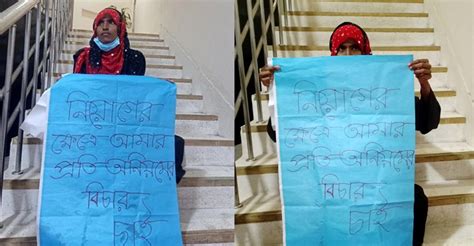 নিয়োগের
ক্ষেত্রে আমার
প্রতি অনিয়মের
বিচার
চাই
নিয়োগের
ক্ষেত্রে আমার
প্রতি অনিয়মের
বিচার
চাই